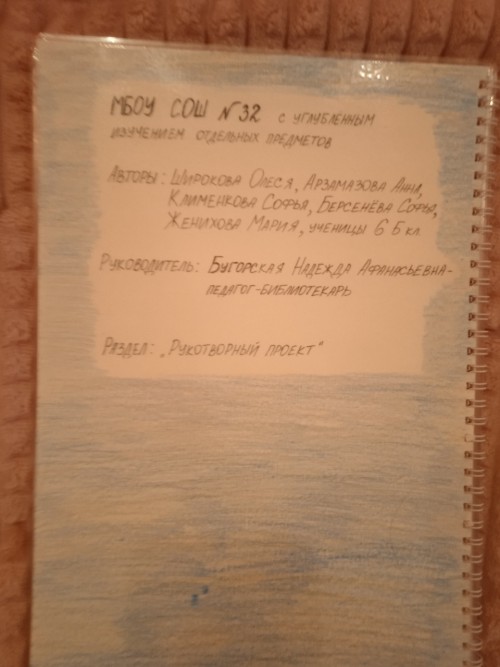 МБОУ СОШ №32 с углубленным
изучением отдельных предметов
Авторы: Широкова Олеся, Арзамазова Анна,
Клименкова Софья, Берсенёва Софья,
Женихова Мария, ученицы 6 Б кл
Руководитель: Бугорская Надежда Афанасьевна-
педагог-библиотекарь
Раздел: „Рукотворный проект"